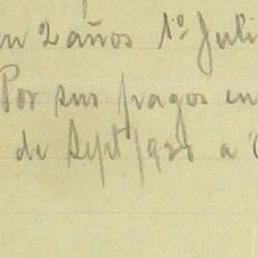 en 2 años 1º Juli
Por sus pagos en
de Sept 1938 a